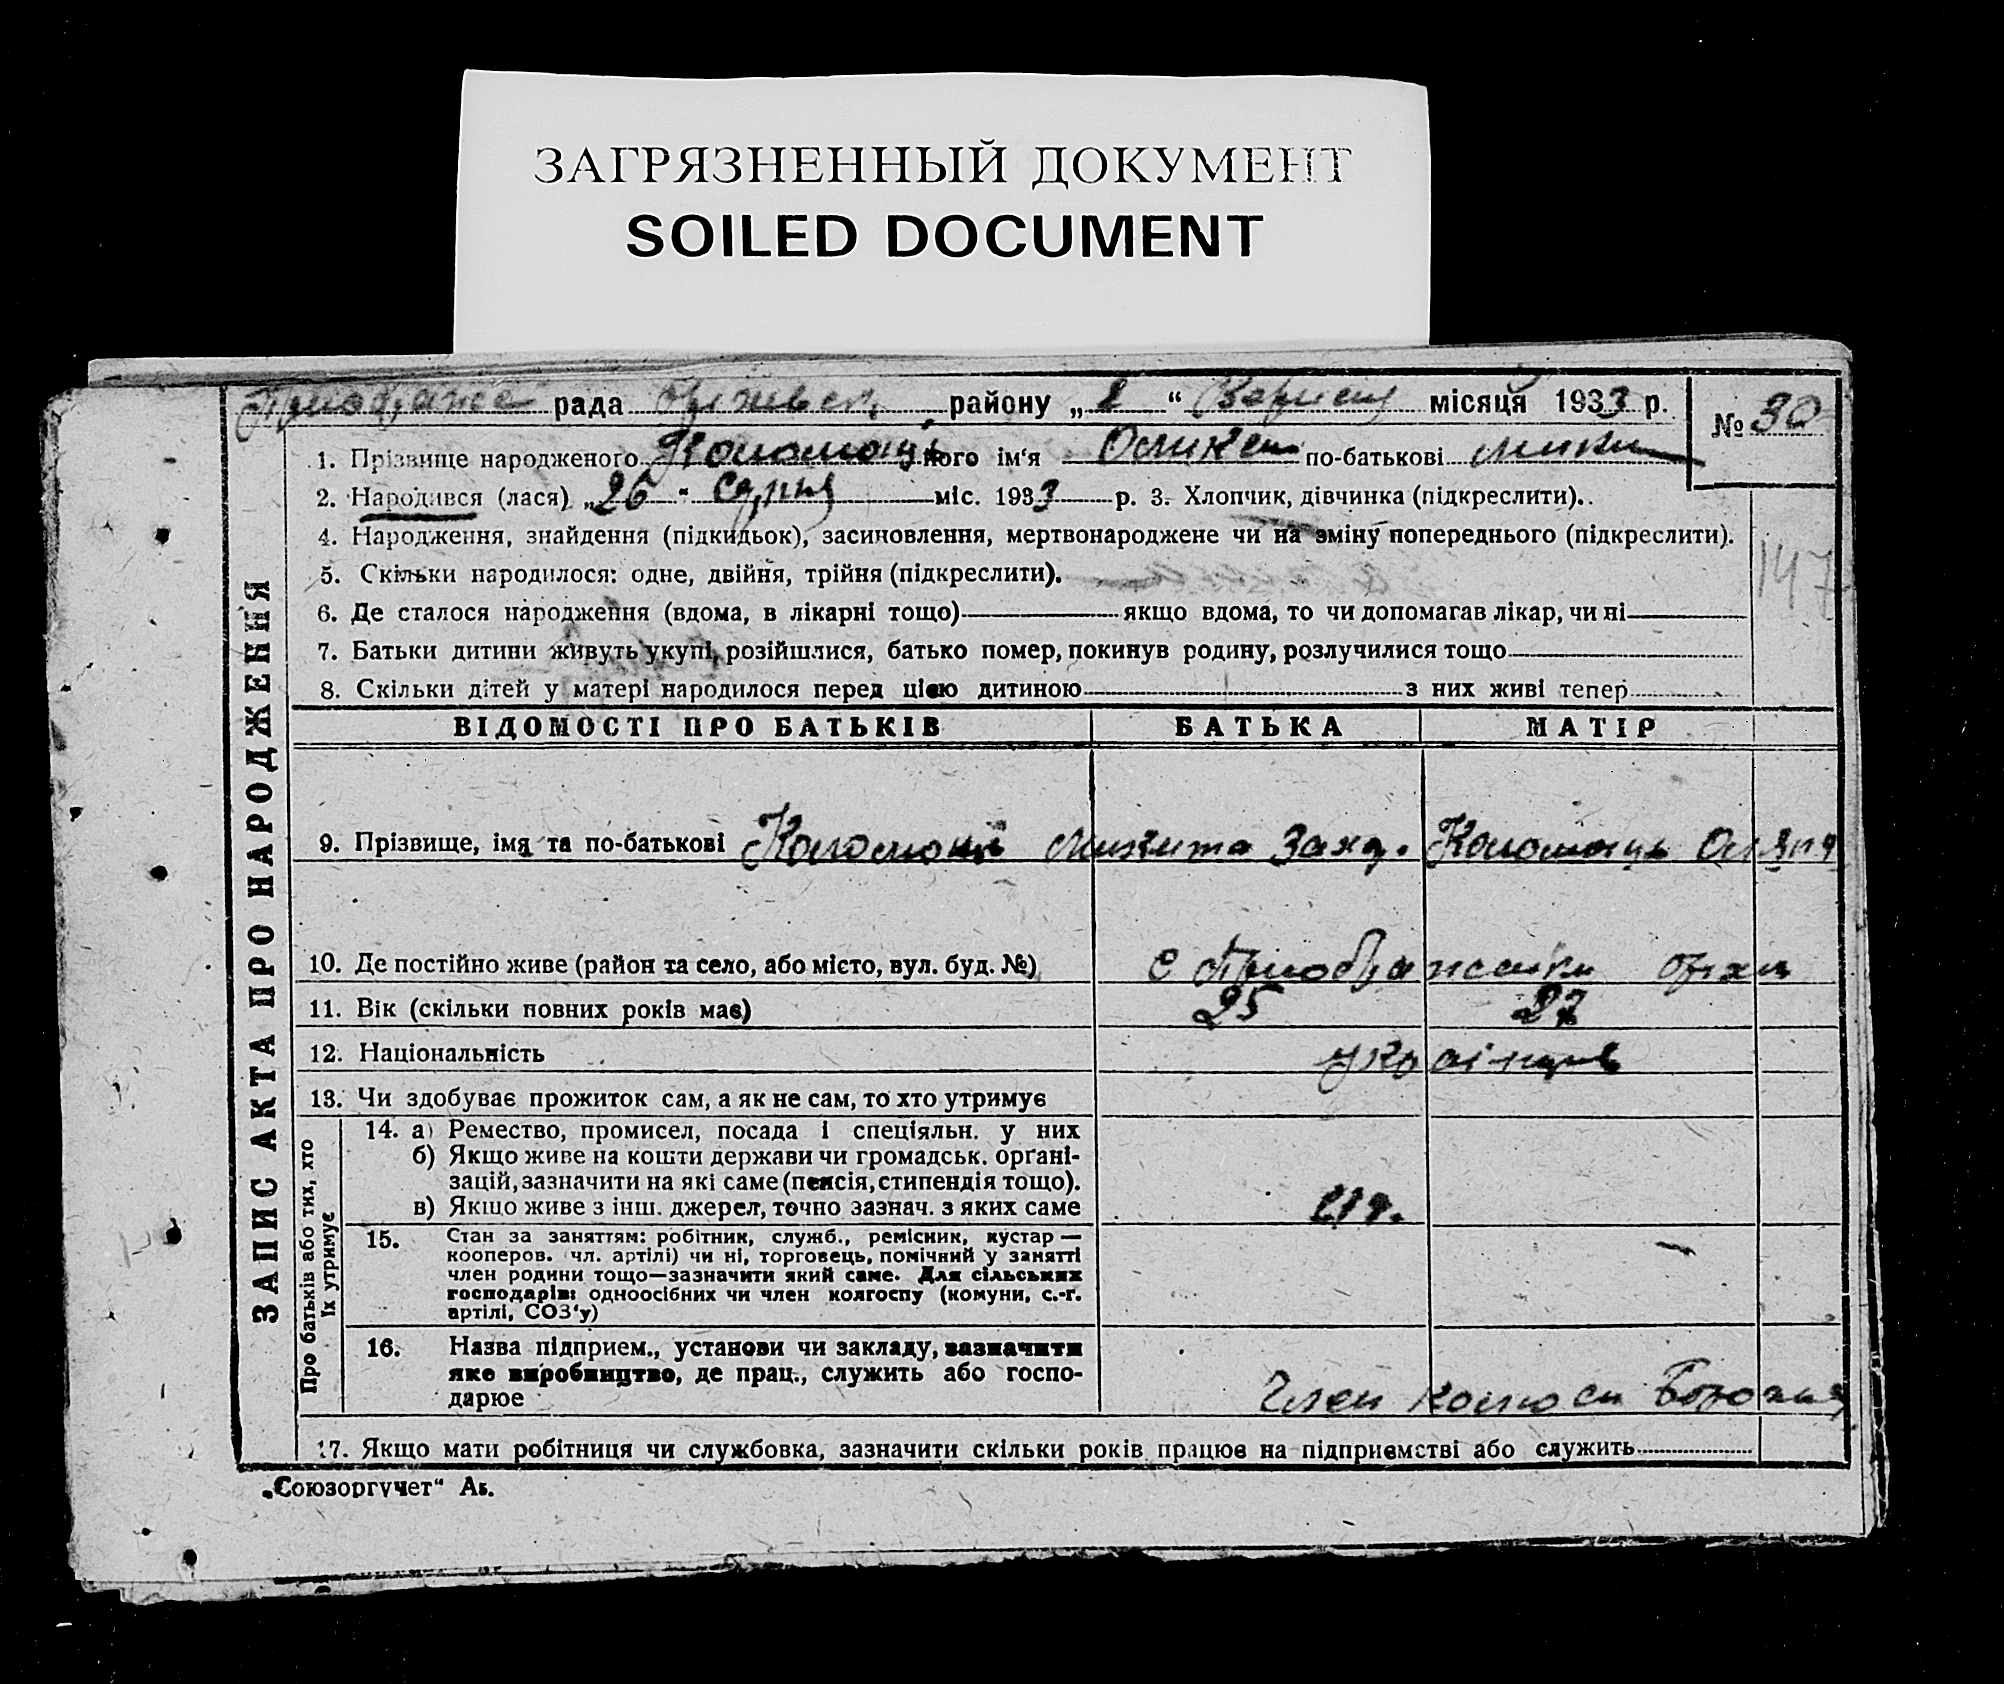 ЗАГРЯЗНЕННЫЙ ДОКУМЕНТ
SOILED DOCUMENT
рада району „2“ місяця 1933 р. № 30
1. Прізвище народженого Коломоєць його ім'я по-батькові
2. Народився (лася) „26 серпня міс. 1933 р. 3. Хлопчик, дівчинка (підкреслити).
4. Народження, знайдення (підкидьок), засиновлення, мертвонароджене чи на зміну попереднього (підкреслити).
147
5. Скільки народилося: одне, двійня, трійня (підкреслити).
6. Де сталося народження (вдома, в лікарні тощо) якщо вдома, то чи допомагав лікар, чи ні
7. Батьки дитини живуть укупі, розійшлися, батько помер, покинув родину, розлучилися тощо
8. Скільки дітей у матері народилося перед цією дитиною з них живі тепер
ЗАПИС АКТА ПРО НАРОДЖЕННЯ
ВІДОМОСТІ ПРО БАТЬКІВ БАТЬКА МАТІР
9. Прізвище, імя та по-батькові Коломоєць Микита Заха. Коломоєць
10. Де постійно живе (район та село, або місто, вул. буд. №) с
11. Вік (скільки повних років має) 25 27
12. Національність українців
13. Чи здобуває прожиток сам, а як не сам, то хто утримує
Про батьків або тих, хто їх утримує
14. а) Ремество, промисел, посада і спеціяльн. у них
б) Якщо живе на кошти держави чи громадськ. орґані-
зацій, зазначити на які саме (пенсія, стипендія тощо).
в) Якщо живе з інш. джерел, точно зазнач. з яких саме
15. Стан за заняттям: робітник, служб., ремісник, кустар —
кооперов. чл. артілі) чи ні, торговець, помічний у занятті
член родини тощо—зазначити який саме. Для сільських
господарів: одноосібних чи член колгоспу (комуни, с.-г.
артілі, СОЗ'у)
16. Назва підприєм., установи чи закладу, зазначити
яке виробництво, де прац., служить або госпо-
дарює Член
17. Якщо мати робітниця чи службовка, зазначити скільки років працює на підприємстві або служить
„Союзоргучет“